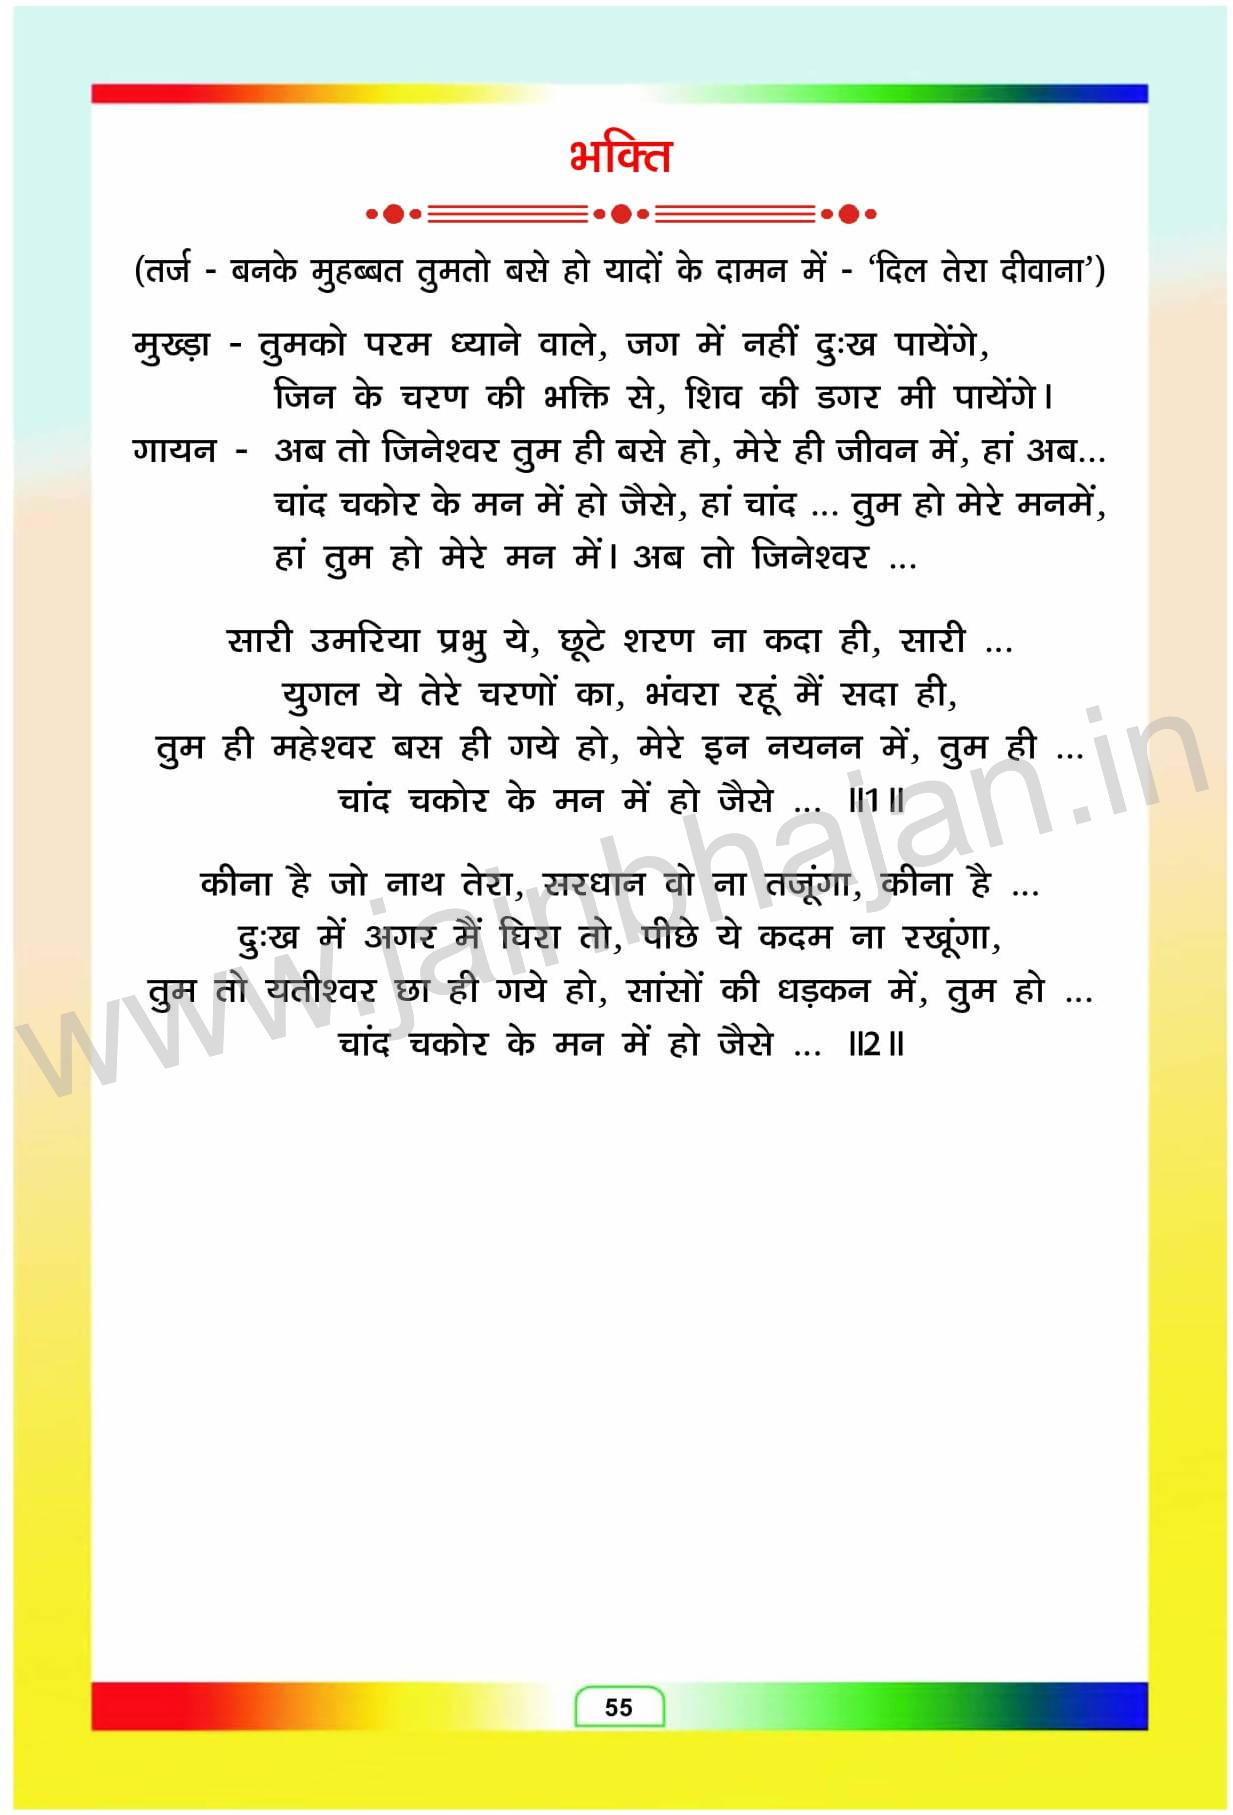 भक्ति
(तर्ज - बनके मुहब्बत तुमतो बसे हो यादों के दामन में - ‘दिल तेरा दीवाना’)
मुखड़ा - तुमको परम ध्याने वाले, जग में नहीं दुःख पायेंगे,
जिन के चरण की भक्ति से, शिव की डगर मी पायेंगे।
गायन - अब तो जिनेश्वर तुम ही बसे हो, मेरे ही जीवन में, हां अब...
चांद चकोर के मन में हो जैसे, हां चांद ... तुम हो मेरे मनमें,
हां तुम हो मेरे मन में। अब तो जिनेश्वर ...
सारी उमरिया प्रभु ये, छूटे शरण ना कदा ही, सारी ...
युगल ये तेरे चरणों का, भंवरा रहूं मैं सदा ही,
तुम ही महेश्वर बस ही गये हो, मेरे इन नयनन में, तुम ही ...
चांद चकोर के मन में हो जैसे ... ॥1॥
कीना है जो नाथ तेरा, सरधान वो ना तजूंगा, कीना है ...
दुःख में अगर मैं घिरा तो, पीछे ये कदम ना रखूंगा,
तुम तो यतीश्वर छा ही गये हो, सांसों की धड़कन में, तुम हो ...
चांद चकोर के मन में हो जैसे ... ॥2॥
www.jainbhajan.in
55